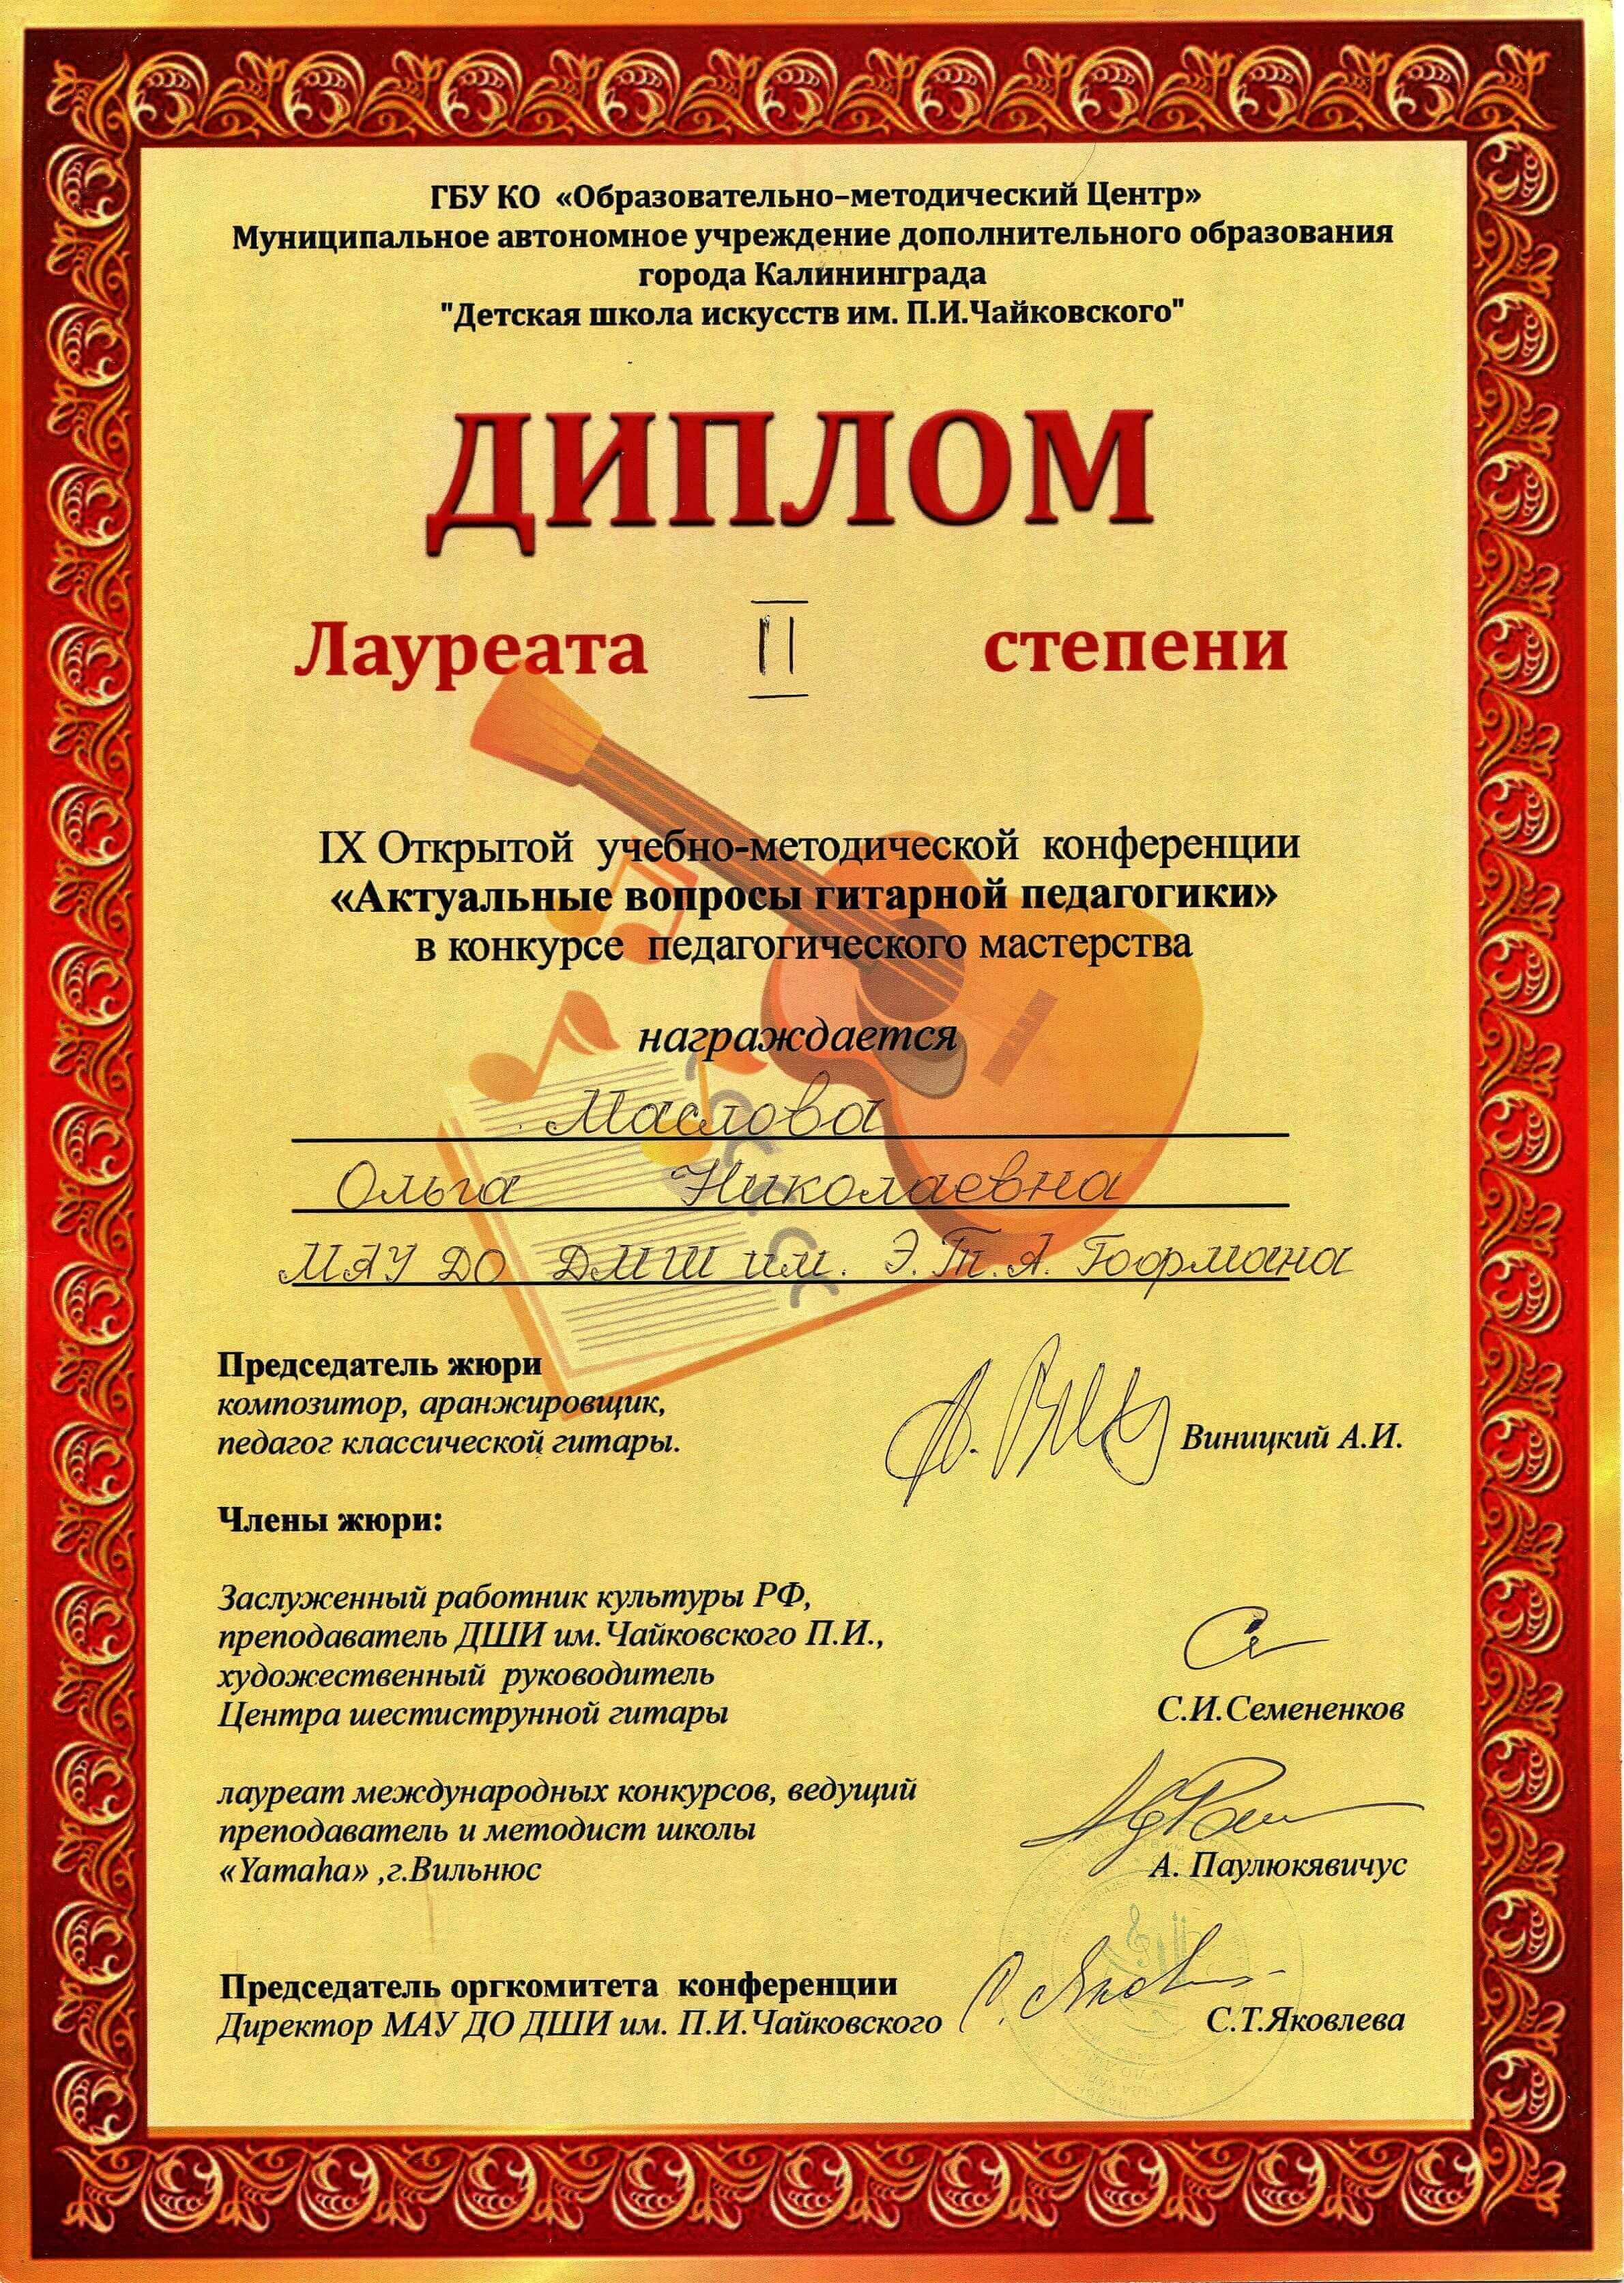 ГБУ КО «Образовательно–методический Центр»
Муниципальное автономное учреждение дополнительного образования
города Калининграда
"Детская школа искусств им. П.И.Чайковского"
ДИПЛОМ
Лауреата II степени
IX Открытой учебно-методической конференции
«Актуальные вопросы гитарной педагогики»
в конкурсе педагогического мастерства
награждается
Маслова
Ольга Николаевна
МАУ ДО ДМШ им. Э.Т.А. Гофмана
Председатель жюри
композитор, аранжировщик,
педагог классической гитары.
Виницкий А.И.
Члены жюри:
Заслуженный работник культуры РФ,
преподаватель ДШИ им.Чайковского П.И.,
художественный руководитель
Центра шестиструнной гитары
С.И.Семененков
лауреат международных конкурсов, ведущий
преподаватель и методист школы
«Yamaha» ,г.Вильнюс
А. Паулюкявичус
Председатель оргкомитета конференции
Директор МАУ ДО ДШИ им. П.И.Чайковского
С.Т.Яковлева